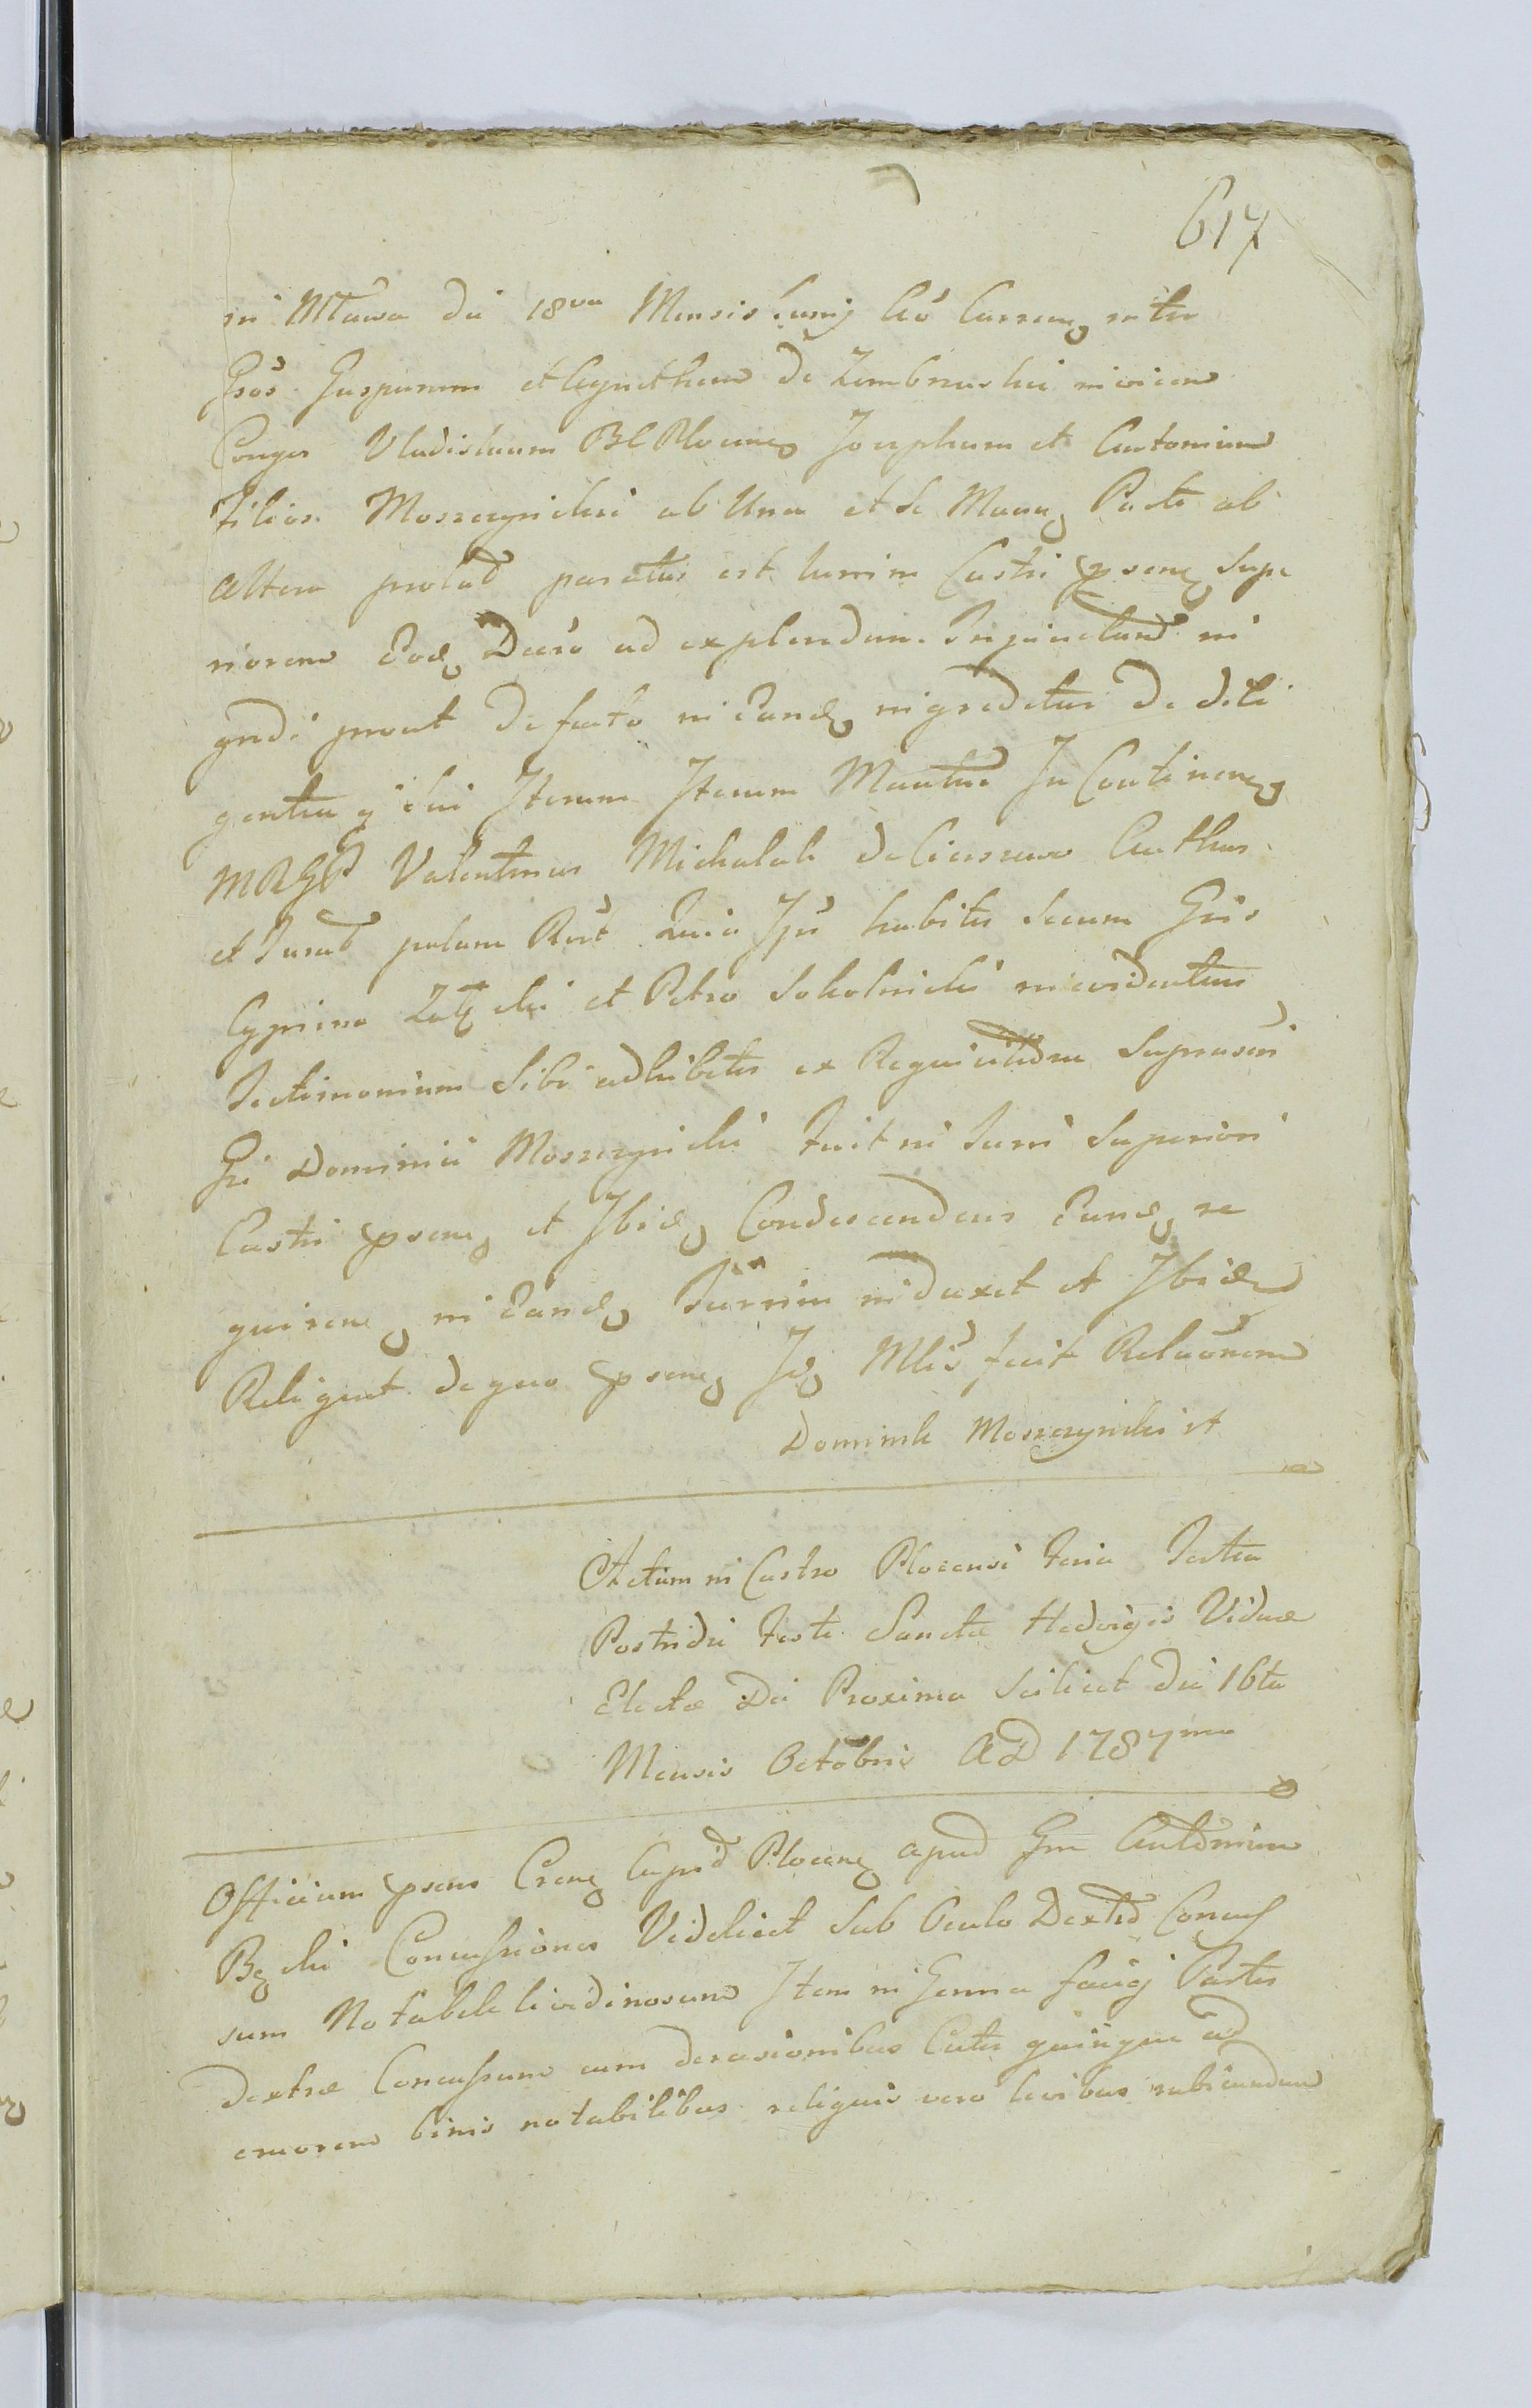 617
in Mława die 18va Mensis Junij Ao Curren inter
Gsos Gasparum et Agnetham de Zembrzuskie invicem
Conges Vladislaum BC Plocens Josephum et Antonium
Filios Moszczynskie ab Una et se Manen Parte ab
altera prolat paratus est turrim Castri psens Supe
riorem Eod Decro ad explendum Injunctum in
gredi prout de facto in Eand ingreditur de dili
gentia q sui Iterum Iterum Mantur In Continen
MRGP Valentinus Michalak de Ciesrewo Authen
et Jurat palam Rect Quia Ips habitis secum Gsis
Cyprino et Petro Sokolnicki in evidentius
Testimonium Sibi adhibitis ex Requisitione Suprascri
Gsi Dominici Moszczynski Fuit in Turri Superiori
Castri psens et Ibid Condescendens Eund re
quirens in Eand Turrim induxit et Ibid
Reliquit de quo psens Id Mlis fecit Relaonem
Dominik Moszczynski
Actum in Castro Plocensi Feria Tertia
Postridie Festi Sanctæ Hedvigis Viduæ
Electæ Dei Proxima Scilicet die 16ta
Mensis Octobris AD 1787mo
Officium psens Crens Capit Plocens apud Gsm Antonium
Concussiones Videlicet Sub Oculo Dextro Concus
sum Notabile livedinosum Item in Genna faciej Partis
dextræ Concussum cum derasionibus Cutis quinque ad
cruorem binis notabilibus reliquis vero levibus rubicundum